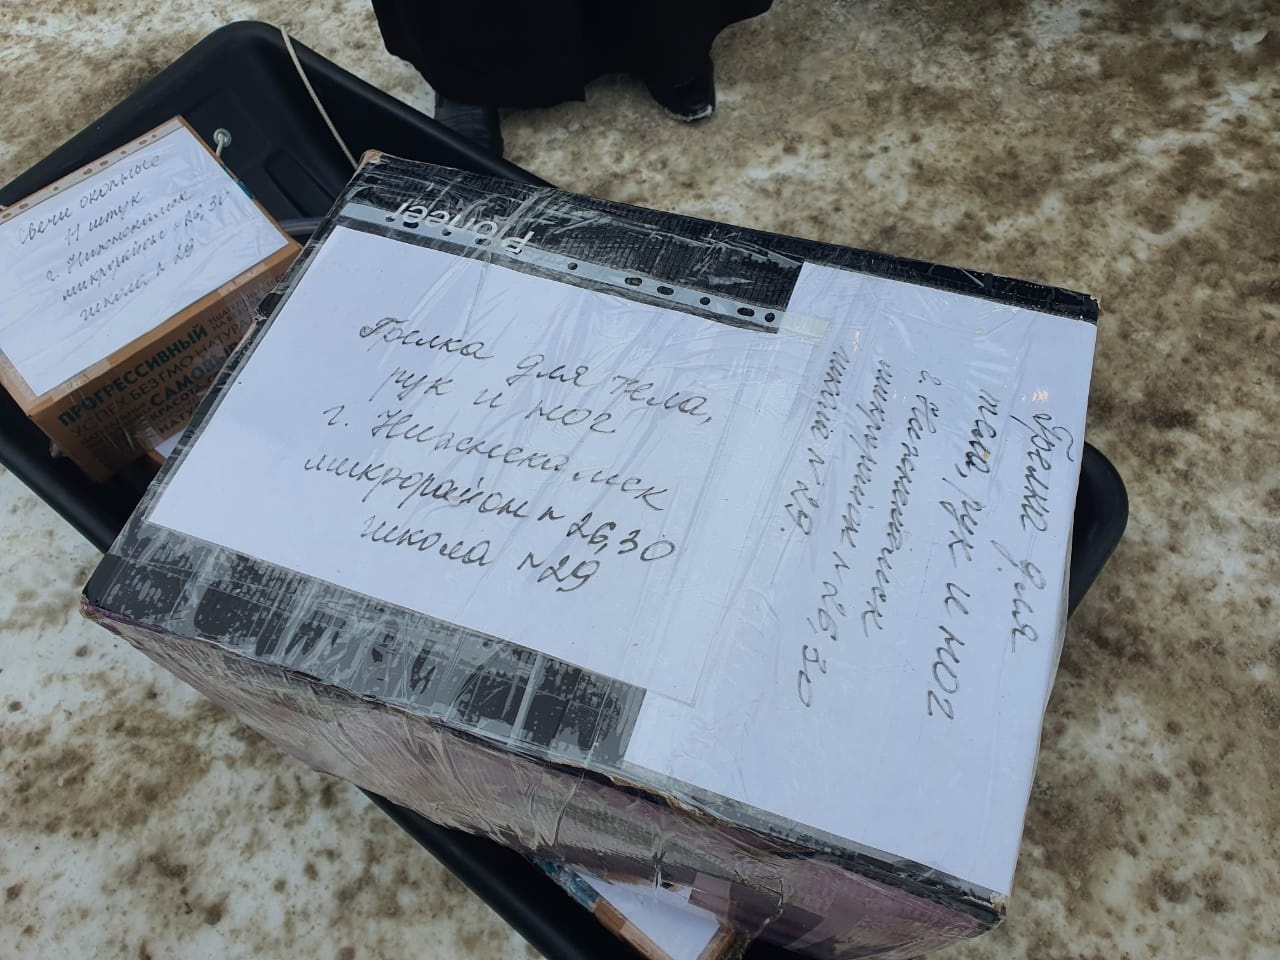 Свечи окопные
11 штук
г. Нижнекамск
микрорайон н 26, 30
школа н 29
ПРОГРЕССИВНЫЙ
УСПЕХ БЕЗГМО НАТУРА
САМОВЫ
КРАСОТА
Pioneer
Грелка для тела,
рук и ног
г. Нижнекамск
микрорайон н 26,30
школа н 29
Грелка для
тела, рук и ног
г. Нижнекамск
микрорайон н 26, 30
школа н 29.